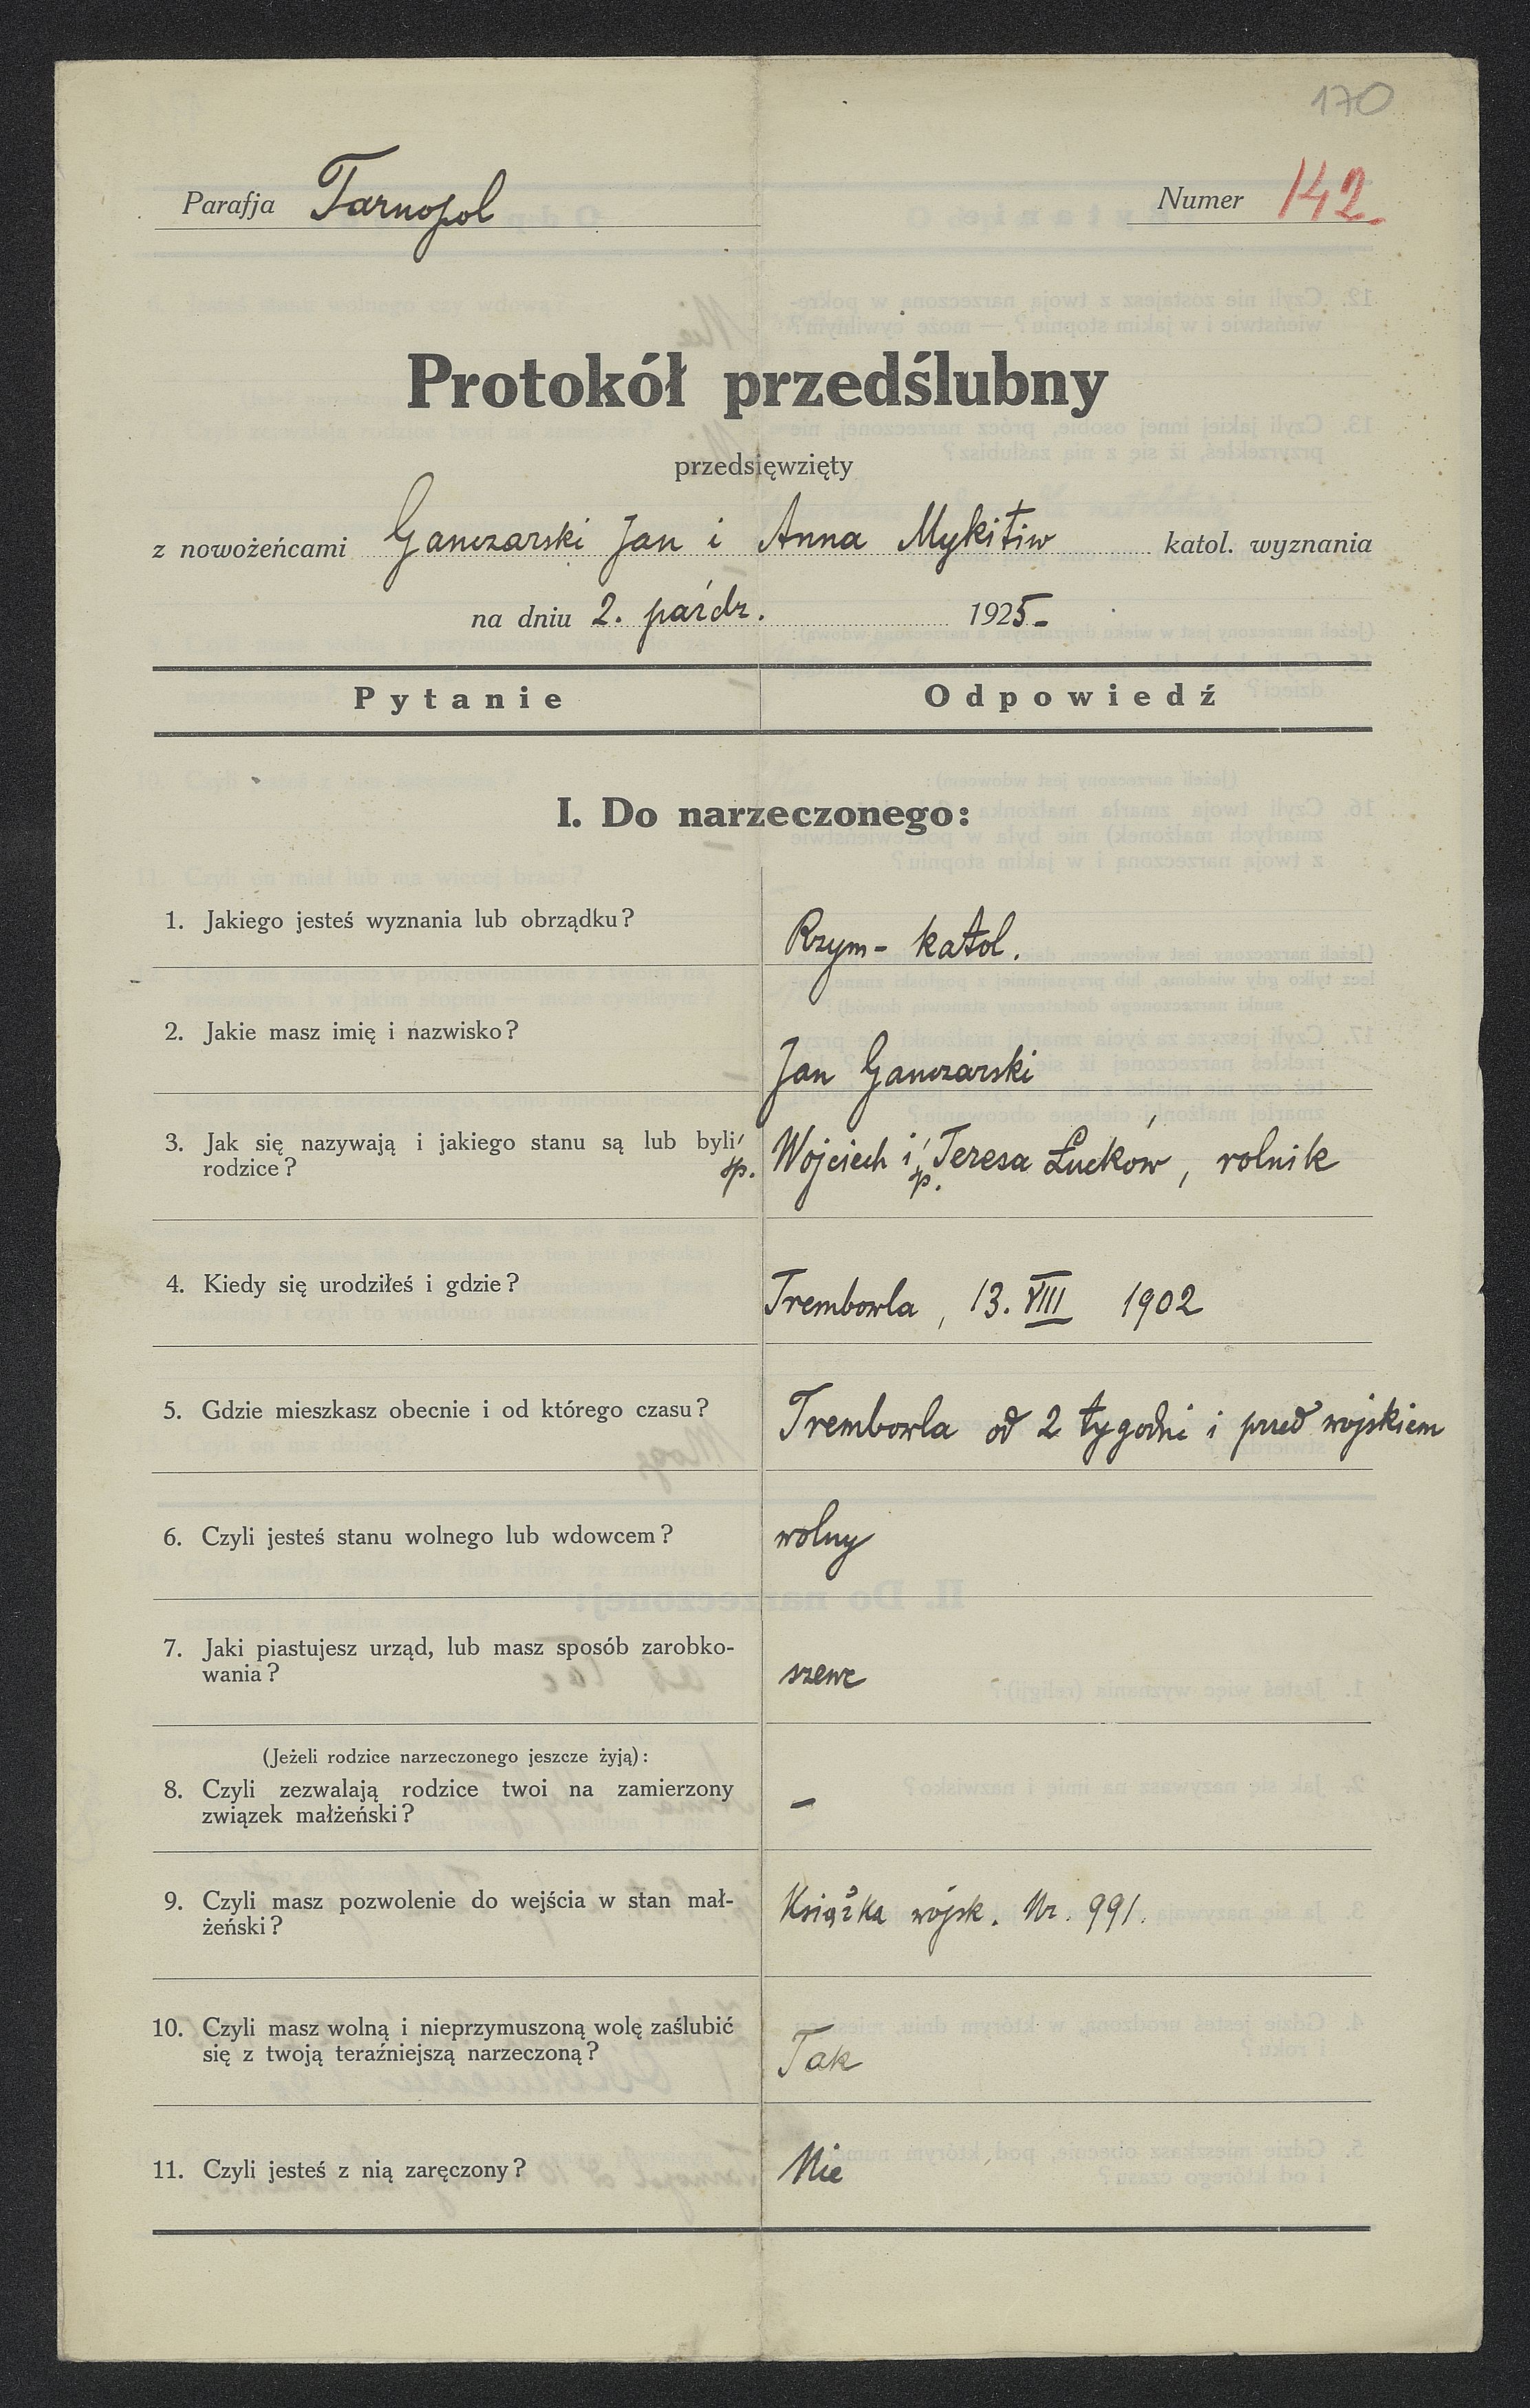 170
Parafja Tarnopol Numer 142.
Protokół przedślubny
przedsięwzięty
z nowożeńcami Ganczarski Jan i Anna Mykitiw katol. wyznania
na dniu 2. paźdz. 1925-
Pytanie Odpowiedź
I. Do narzeczonego:
1. Jakiego jesteś wyznania lub obrządku? Rzym- katol.
2. Jakie masz imię i nazwisko? Jan Ganczarski
3. Jak się nazywają i jakiego stanu są lub byli
rodzice? śp. Wojciech i śp. Teresa Łucków, rolnik
4. Kiedy się urodziłeś i gdzie? Trembowla, 13. VIII 1902
5. Gdzie mieszkasz obecnie i od którego czasu? Trembowla od 2 tygodni i przed wojskiem
6. Czyli jesteś stanu wolnego lub wdowcem? wolny
7. Jaki piastujesz urząd, lub masz sposób zarobko-
wania? szewc
(Jeżeli rodzice narzeczonego jeszcze żyją):
8. Czyli zezwalają rodzice twoi na zamierzony
związek małżeński? –
9. Czyli masz pozwolenie do wejścia w stan mał-
żeński? Książka wojsk. Nr. 991.
10. Czyli masz wolną i nieprzymuszoną wolę zaślubić
się z twoją teraźniejszą narzeczoną? Tak
11. Czyli jesteś z nią zaręczony? Nie